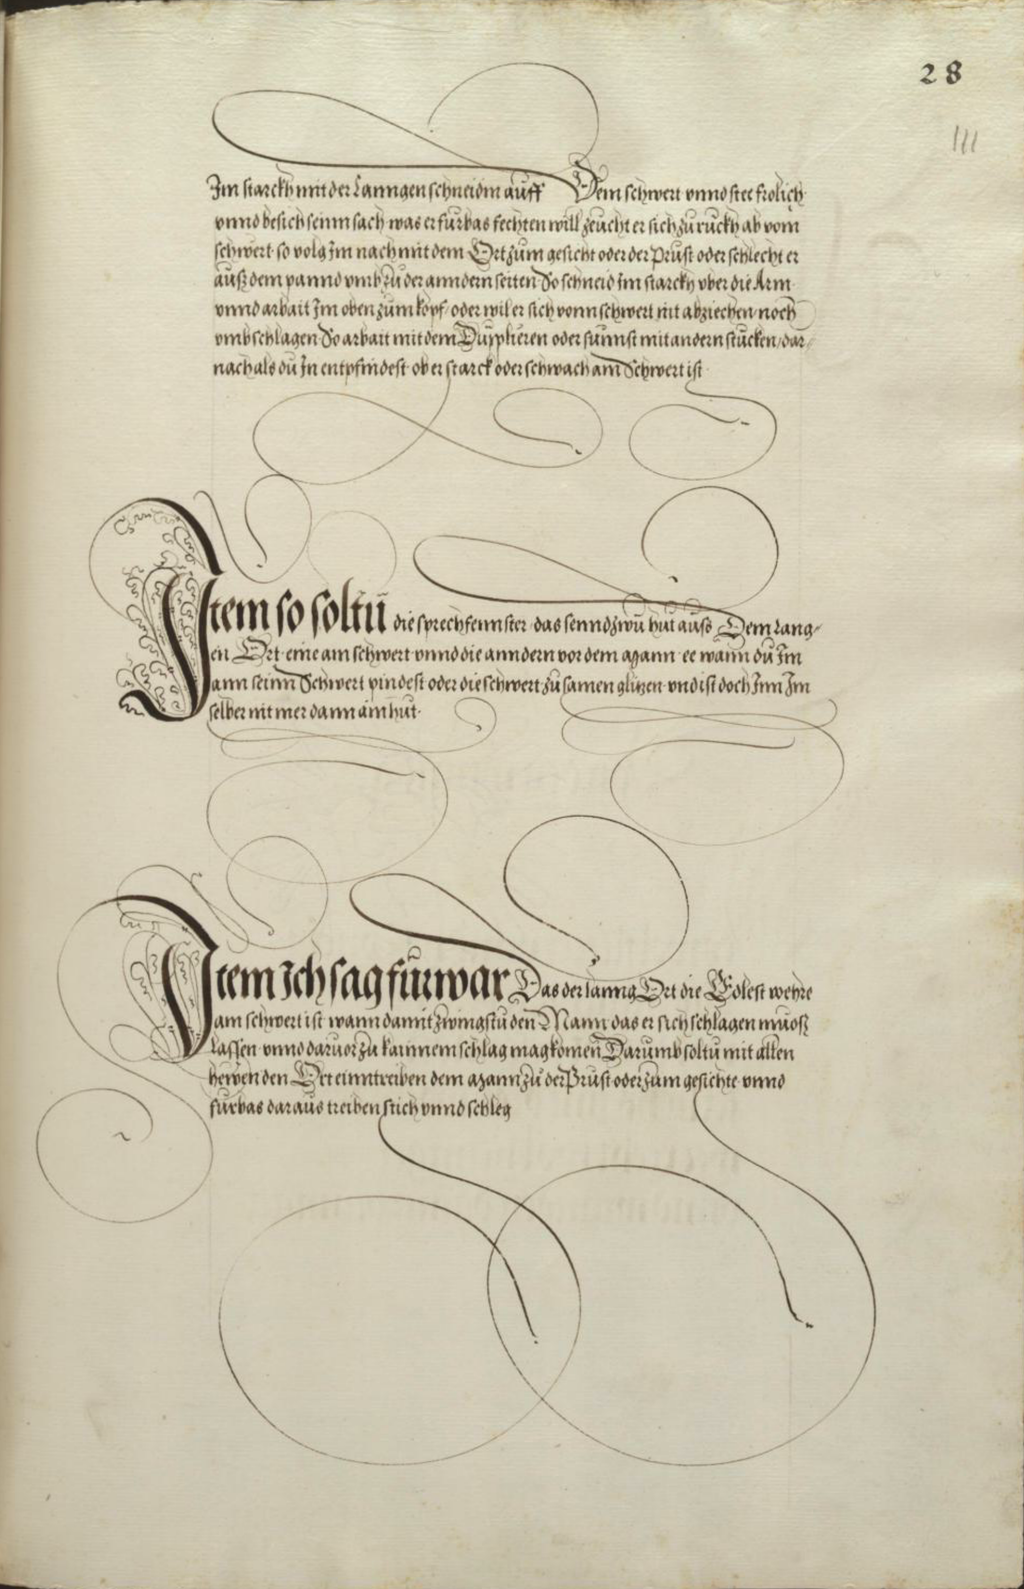 28
111
Im starckh mit der Lanngen schneidin auff Dem schwert vnnd stee frolich
vnnd besich seinn sach was er furbas fechten will zeucht er sich zu ruckh ab vom
schwert so volg Im nach mit dem Ort zum gesicht oder der Prust oder schlecht er
auß dem pannd vmb zu der anndern seiten So schneid Im starckh vber die Arm
vnnd arbait Im oben zum kopf oder wil er sich vonn schwert nit abziechen noch
vmbschlagen So arbait mit dem Duplieren oder sunnst mit andern stucken / dar
nach als du In entpfindest ob er starck oder schwach am Schwert ist
Item so soltu die sprechfennster das sennd zwu hut auß Dem Lang
en Ort eine am schwert vnnd die anndern vor dem Mann ee wann du Im
ann seinn Schwert pindest oder die schwert zu samen glitzen vnd ist doch Inn Im
selber nit mer dann ain hut
Item Ich sag furwar Das der lanng Ort die Edlest wehre
am schwert ist wann damit zwingstu den Mann das er sich schlagen muoß
Lassen vnnd daruor zu kainnem schlag mag komen Darumb soltu mit allen
hewen den Ort einntreiben dem Mann zu der Prust oder zum gesichte vnnd
furbas daraus treiben stich vnnd schleg